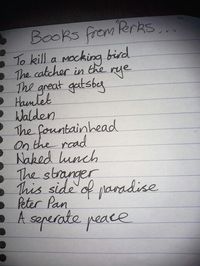 Books from 'Perks...
To kill a mocking bird
The catcher in the rye
The great gatsby
Hamlet
Walden
The fountainhead
On the road
Naked lunch
The stranger
This side of paradise
Peter Pan
A seperate peace